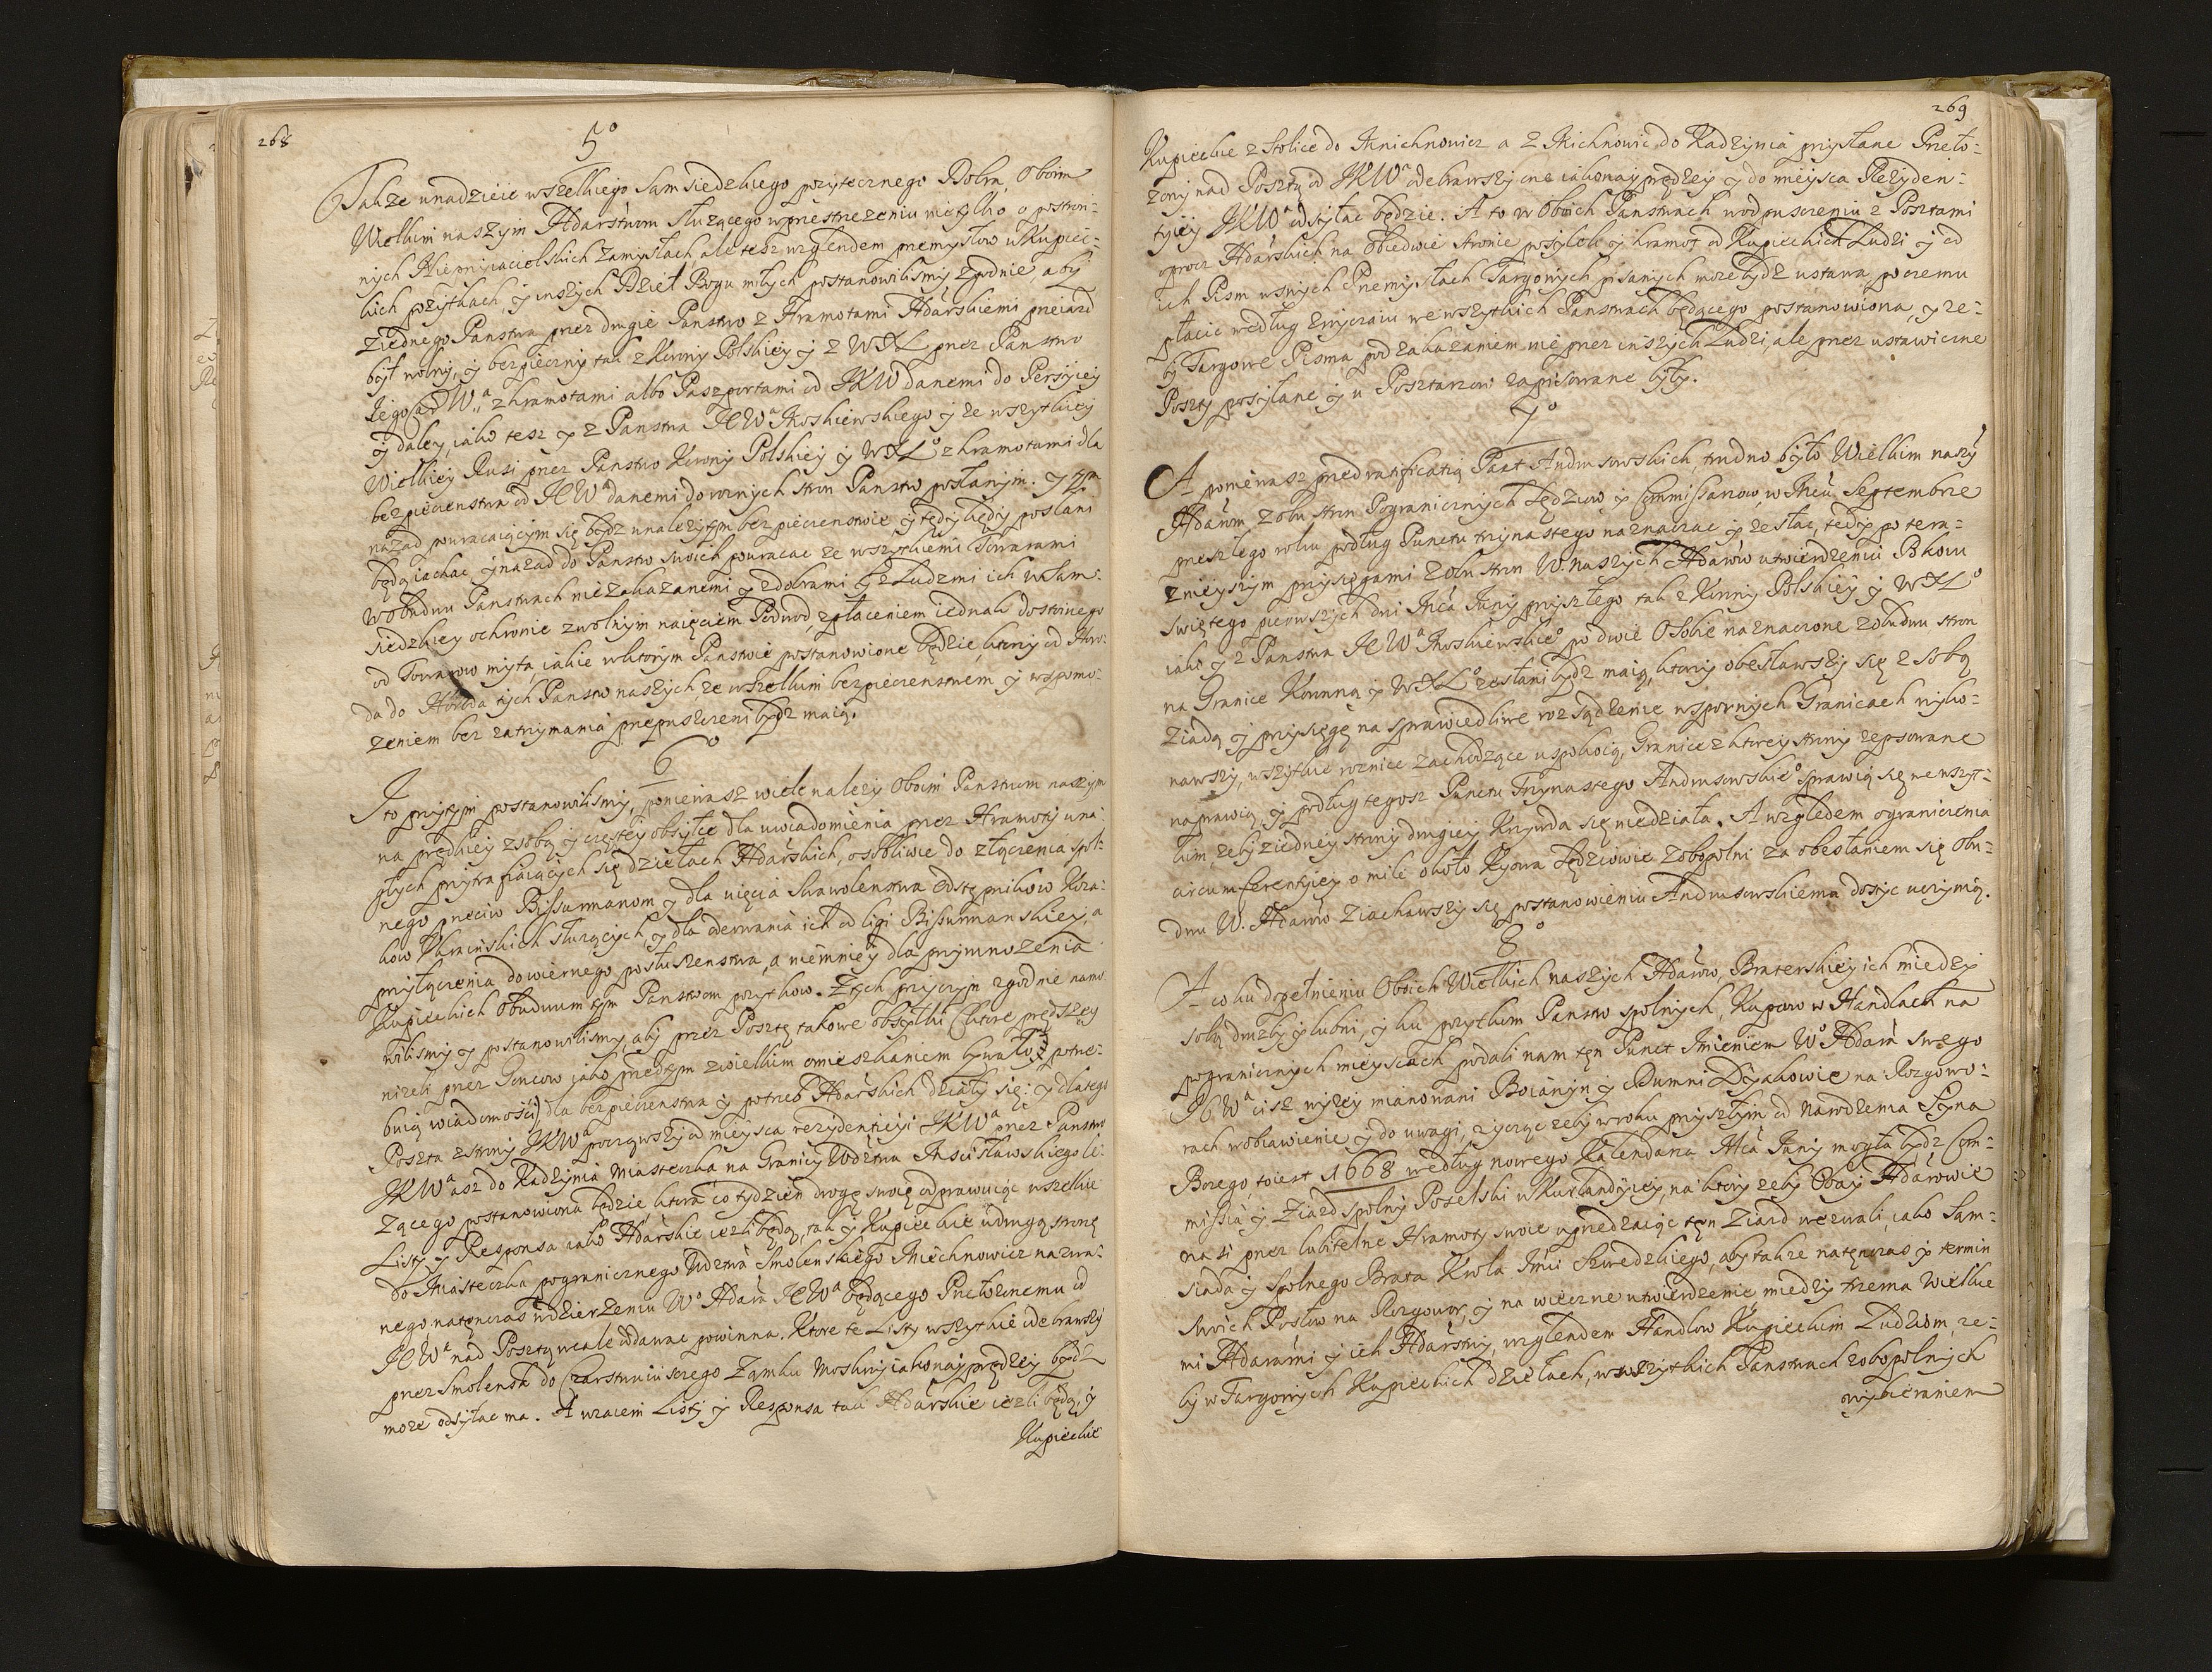 268
5°
Takze unadzieie wszelkiego Samsiedzkiego pozytecznego Dobra, Oboim
Wielkim naszym Hdarstwom słuzącego w przestrzezeniu nie tylko o postron-
nych Nieprzyiacielskich Zamysłach, ale tesz wzglendem przemysłow w Kupiec-
kich pozytkach, y inszych Dzieł Bogu miłych postanowilismy zgodnie aby
z iednego Panstwa przez drugie Panstwo z Hramotami Hdarskiemi przeiazd
był wolny, y bezpieczny tak z Korony Polskiey y z WXL przez Panstwo
Iego Car W.ª z hramotami albo Paszportami od JKW danemi do Persyiey
y daley, iako tesz y z Panstwa JCWª Moskiewskiego y ze wszytkiey
Wielkiey Rusi przez Panstwo Korony Polskiey y WXL° z hramotami dla
bezpieczenstwa od JCWª danemi do roznych stron Panstw posłanym. Y tym
nazad powracaiącym się bydz w nalezytym bezpieczenstwie y tędy kędy posłani
będą iachac y nazad do Panstw swoich powracac ze wszytkiemi Towarami
w obudwu Panstwach nie zakazanemi y z dobrami y z Ludzmi ich w Sam-
siedzkiey ochronie z wolnym naięciem Podwod, z płaceniem iednak dostoinego
od Towarow myta, iakie w ktorym Panstwie postanowione będzie, ktorzy od Horo-
da do Horoda tych Panstw naszych ze wszelkim bezpieczenstwem y wspomo-
zeniem bez zatrzymania przepuszczeni bydz maią.
6°
I to przytym postanowilismy, poniewasz wiele nalezy Oboim Panstwom naszym
na prędkiey z sobą y częstey obsyłce dla uwiadomienia przez Hramoty w na-
głych przytrafiaiących się dziełach Hdarskich, osobliwie do złączenia spol-
nego przeciw Bissurmanom y dla uięcia Swawolenstwa Odstępnikow Koza-
kow Ukrainskich słuzących, y dla oderwania ich od ligi Bissurmanskiey, a
przyłączenia do wiernego posłuszenstwa, a niemniey dla przymnozenia
Kupieckich Obudwum tym Panstwom pozytkow. Z tych przyczyn zgodnie namo-
wilismy y postanowilismy, aby przez Posztę takowe obsyłki (ktore prędszey
nizeli przez Goncow iako przedtym z wielkim omieszkaniem bywało, potrze-
buią wiadomości) dla bezpieczenstwa y potrzeb Hdarskich działy się: y dlatego
Poszta z strony JKWª począwszy od mieysca rezydentiyi JKWª przez Panstwo
JKWª asz do Kadzynia Miasteczka na Granicy Wdztwa Mscisławskiego le-
zącego postanowiona będzie ktora co tydzien drogę swoię odprawuiąc wszelkie
Listy y Responsa iako Hdarskie iezli będą, tak y Kupieckie w drugą stronę
do Miasteczka pogranicznego Wdztwa Smolenskiego Miechnowicz nazwa-
nego natenczas w dzierzeniu W° Hdara JCWª będącego Przełozonemu od
JCWª nad Posztą wcale oddawac powinna. Ktore te Listy wszytkie odebrawszy
przez Smolensk do Czarstwuiuszczego Zamku Moskwy iako nayprędzey bydz
moze odsyłac ma. A wzaiem Listy y Responsa tak Hdarskie iezli będą, y
Kupieckie
269
Kupieckie z Stolice do Mnichnowicz a z Michnowic do Kadzynia przysłane Przeło-
zony nad Posztą od JKWª odebrawszy one iako nayprędzey y do mieysca Rezyden-
tyiey JKWª odsyłac będzie. A to w Oboich Panstwach w odpuszczeniu z Posztami
oprocz Hdarskich na Obiedwie stronie posyłek y hramot od Kupieckich Ludzi y od
ich Pism w swych Przemysłach Targowych pisanych moze bydz ustawa po czemu
płacic według zwyczaiu we wszytkich Panstwach będącego postanowiona, y ze-
by Targowe Pisma pod zakazaniem nie przez inszych Ludzi, ale przez ustawiczne
Poszty posyłane y u Posztarzow zapisowane były.
7°
A poniewasz przed ratificatią Pact Andrusowskich, trudno było Wielkim naszy
Hdarom, z obu stron Pogranicznych Sędziow y Commissarzow, w Mcu Septembrze
przeszłego roku podług Punctu trzynastego naznaczac y zesłac, tedy po tera-
znieyszym przysięgami z obu stron W. naszych Hdarow utwierdzeniu Pokoiu
swiętego pierwszych dni Mca Juny przyszłego tak z Korony Polskiey y WXL°
iako y z Panstwa JCWª Moskiewskie° po dwie Osobie naznaczone z obudwu stron
na Granice Koronną y WXL° zesłani bydz maią, ktorzy obesławszy się z sobą
ziadą y przysięgę na sprawiedliwe rozsądzenie w spornych Granicach wyko-
nawszy, wszytkie roznice zachodzące uspokoią, Granice z ktorey strony zepsowane
naprawią, y podług tegosz Punctu Trzynastego Andrusowskie° sprawią się we wszyt-
kim, zeby z iedney strony drugiey Krzywda się niedziała. A względem ograniczenia
circumferentyiey o mili około Kyowa Sędziowie zobopolni za obesłaniem się Obu-
dwu W. Hdarow ziachawszy się postanowieniu Andrusowskiemu dosyc uczynią.
8°
A co ku dopełnieniu Oboich Wielkich naszych Hdarow, Braterskiey ich miedzy
sobą druzby y lubwi, y ku pozytkom Panstw spolnych, Kupcow w Handlach na
pogranicznych mieyscach podali nam ten Punct Imieniem W° Hdara swego
JCWª cisz wyzey mianowani Boiarzyn y Dumni Dyakowie na Rozgowo-
rach w obiawienie y do uwagi, zycząc zeby w roku przyszłym od Narodzenia Syna
Bozego, toiest 1668 według nowego Kalendarza Mca Juny mogła bydz Com-
missia y Ziazd spolny Poselski w Kurlandyiey, na ktory zeby Obay Hdarowie
naszi przez lubitelne Hramoty swoie uprzedzaiąc ten Ziazd wezwali, iako Sam-
siada y Spolnego Brata Krola Jmci Szwedzkiego, aby takze natenczas y termin
swoich Posłow na Rozgowor, y na wieczne utwierdzenie miedzy trzema Wielkie
mi Hdarami y ich Hdarstwy, wzglendem Handlow Kupieckim Ludziom, ze-
by w Targowych Kupieckich dziełach, we wszytkich Panstwach zobopolnych
wybieraniem